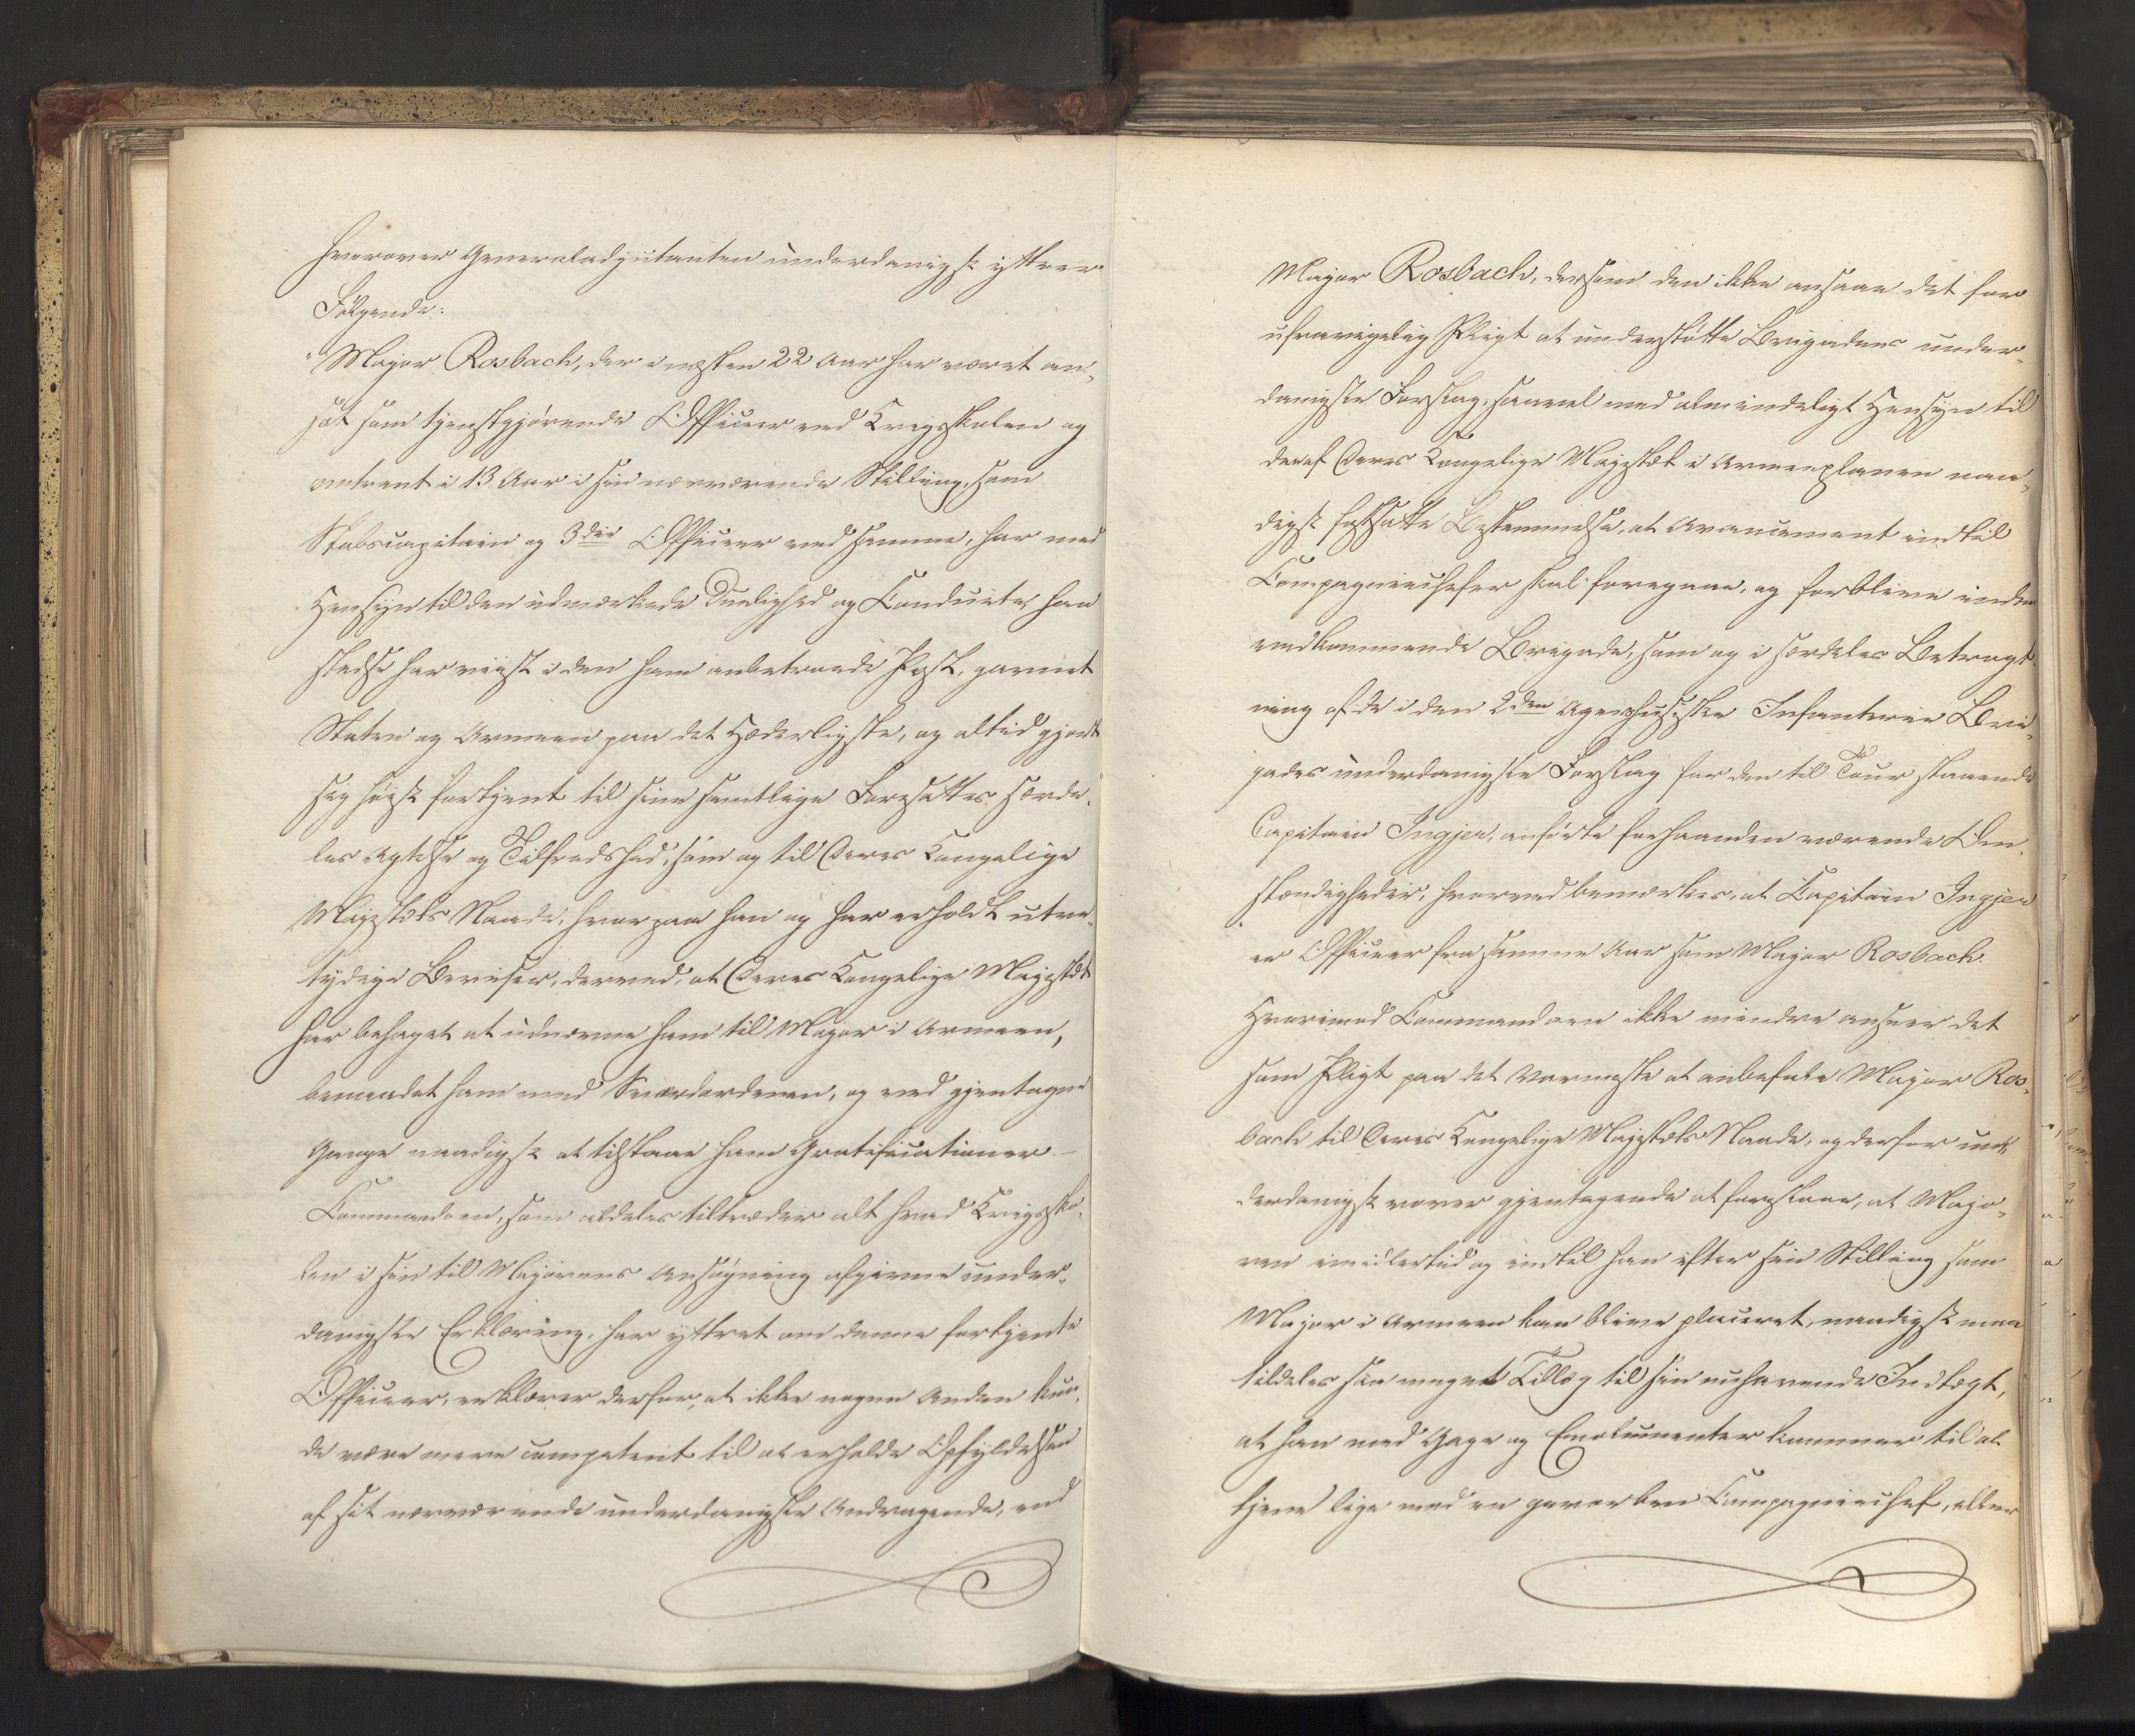 hvorover Generaladjutanten underdanigst yttrer
Følgende:
"Major Rosbach, der i næsten 22 Aar har været an-
sat som tjenstgjørende Officeer ved Krigsskolen og
omtrent i 13 Aar i sin nærværende Stilling, som
Stabscapitain og 3die Officeer ved samme, har med
Hensyn til den udmærkede Duelighed og Conduite, han
stedse har viist i den ham anbetroede Post, gavnet
Staten og Armeen paa det Hæderligste, og altid gjort
sig høist fortjent til sine samtlige Foresattes særde-
les Agtelse og Tilfredshed, som og til Deres Kongelige
Majestæts Naade, hvorpaa han og har erholdt utve-
tydige Beviser, derved, at Deres Kongelige Majestæt
har behaget at udnævne ham til Major i Armeen,
benaadet ham med Sværdordenen, og ved gjentagne
Gange naadigst at tilstaae ham Gratificationer. –
Commandoen, som aldeles tiltræder alt hvad Krigssko-
len i sin til Majorens Ansøgning afgivne under-
danigste Erklæring, har yttret om denne fortjente
Officeer, erklærer derfor, at ikke nogen Anden kun-
de være mere competent til at erholde Opfyldelsen
af sit nærværende underdanigste Andragende, end
Major Rosbach, dersom den ikke ansaae det for
ufravigelig Pligt at understøtte Brigadens under-
danigste Forslag, saavel med almindeligt Hensyn til
den af Deres Kongelige Majestæt i Armeeplanen naa-
digst fastsatte Bestemmelse, at Avancement indtil
Compagniechefer skal foregaae, og forblive inden
vedkommende Brigade, som og i særdeles Betragt-
ning af de i den 2den Agershusiske Infanterie Bri-
gades underdanigste Forslag for den til Tour staaende
Capitain Ingjer, anførte forhaanden værende Om-
stændigheder, hvorved bemærkes, at Capitain Ingjer
er Officeer fra samme Aar som Major Rosbach.
Hvorimod Commandoen ikke mindre anseer det
som Pligt paa det Varmeste at anbefale Major Ros-
bach til Deres Kongelige Majestæts Naade, og derfor un-
derdanigst vover gjentagende at foreslaae, at Majo-
ren imidlertid og indtil han efter sin Stilling som
Major i Armeen kan blive placeret, naadigst maa
tildeles saa meget Tillæg til sin nuhavende Indtægt,
at han med Gage og Emolumenter kommer til at
tjene lige med en gevorben Compagniechef, eller